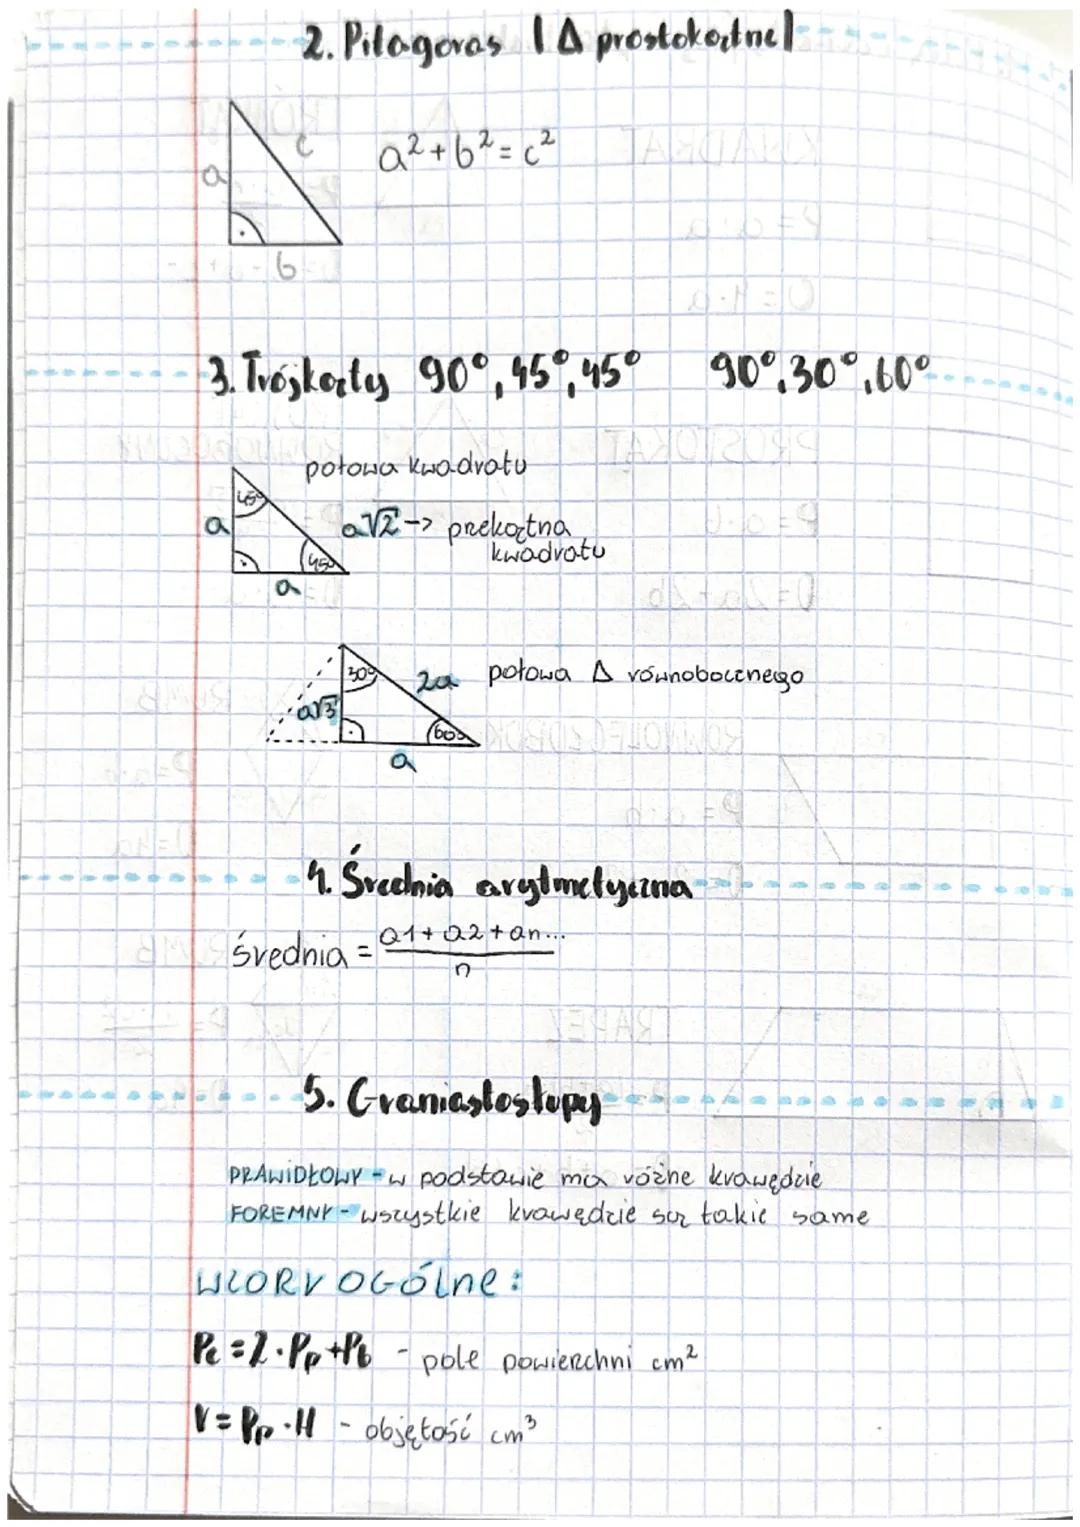 2. Pitagoras (Δ prostokątne)
a
c
b
a² + b² = c²
3. Trójkąty 90°, 45°, 45° 90°, 30°, 60°
połowa kwadratu
45°
a
a√2 -> przekątna
kwadratu
45°
a
30°
2a
połowa Δ równobocznego
a√3
60°
a
4. Średnia arytmetyczna
średnia = a1 + a2 + an... / n
5. Graniastosłupy
PRAWIDŁOWY - w podstawie ma różne krawędzie
FOREMNY - wszystkie krawędzie są takie same
WZORY OGÓLNE:
Pc = 2 · Pp + Pb - pole powierzchni cm²
V = Pp · H - objętość cm³